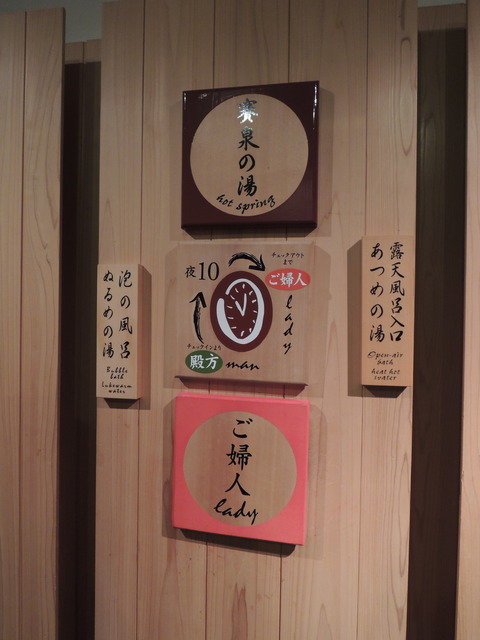 寳泉の湯
hot spring
夜10
チェックアウト
まで
ご婦人
lady
チェックインより
殿方
man
泡の風呂
ぬるめの湯
Bubble
bath
Lukewarm
water
露天風呂入口
あつめの湯
Open-air
bath
heat hot
water
ご婦人
lady